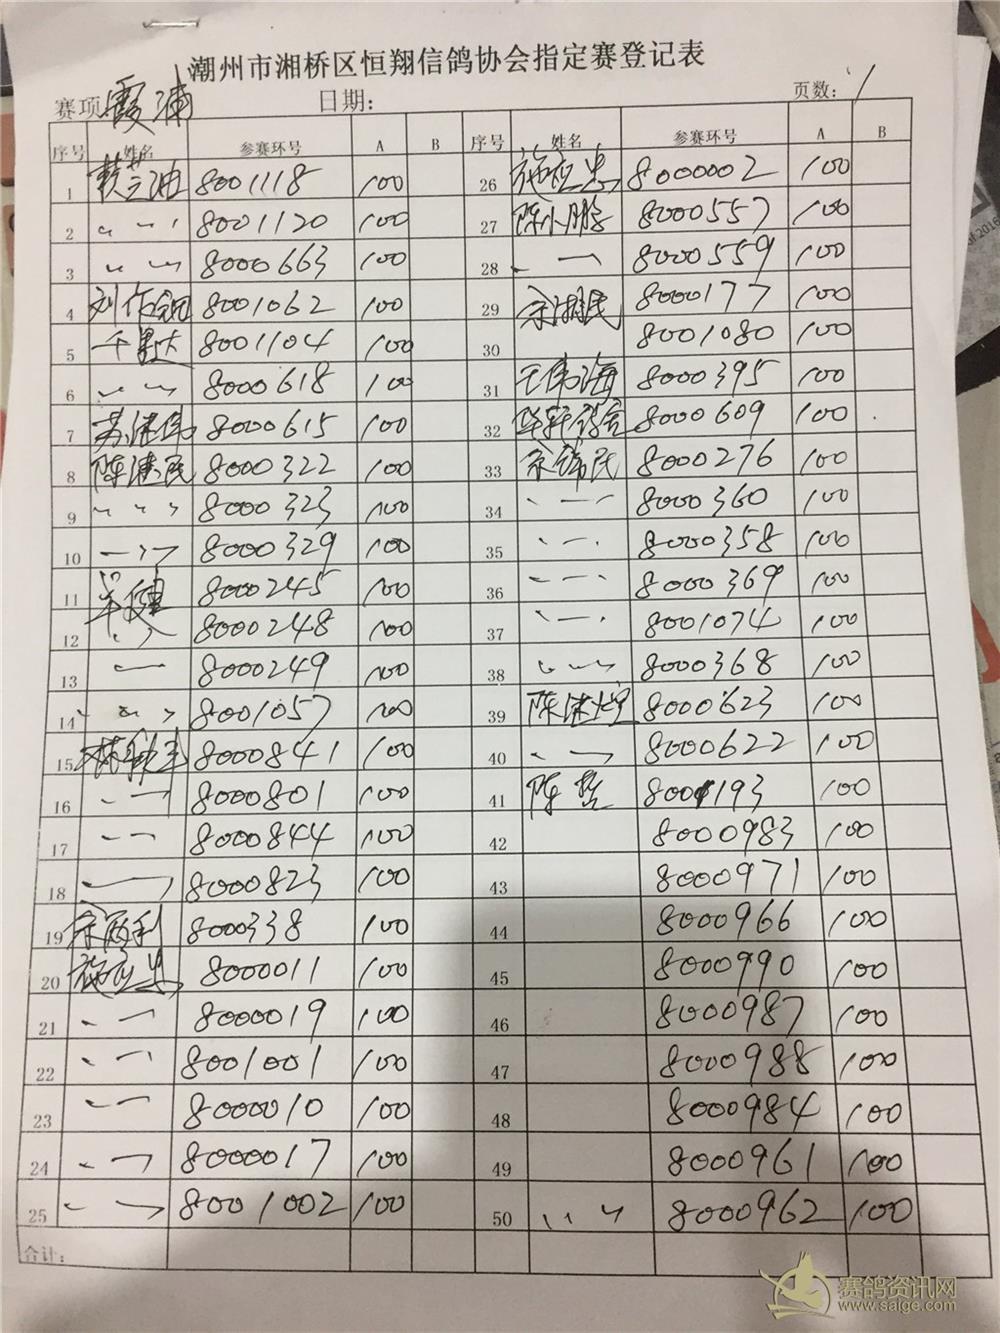 潮州市湘桥区恒翔信鸽协会指定赛登记表
赛项 霞浦 日期： 页数： 1
序号 姓名 参赛环号 A B 序号 姓名 参赛环号 A B
1 8001118 100 26 施应忠 8000002 100
2 〃 8001120 100 27 陈小鹏 8000557 100
3 〃 8000663 100 28 〃 8000559 100
4 刘作钿 8001062 100 29 余湘民 8000177 100
5 8001104 100 30 8001080 100
6 〃 8000618 100 31 王伟海 8000395 100
7 苏洪伟 8000615 100 32 8000609 100
8 陈洪民 8000322 100 33 余锦民 8000276 100
9 〃 8000323 100 34 〃 8000360 100
10 〃 8000329 100 35 〃 8000358 100
11 8000245 100 36 〃 8000369 100
12 〃 8000248 100 37 〃 8001074 100
13 〃 8000249 100 38 〃 8000368 100
14 〃 8001057 100 39 8000623 100
15 8000841 100 40 〃 8000622 100
16 〃 8000801 100 41 陈哲 8001193 100
17 〃 8000844 100 42 8000983 100
18 〃 8000823 100 43 8000971 100
19 8000338 100 44 8000966 100
20 施应忠 8000011 100 45 8000990 100
21 〃 8000019 100 46 8000987 100
22 〃 8001001 100 47 8000988 100
23 〃 8000010 100 48 8000984 100
24 〃 8000017 100 49 8000961 100
25 〃 8001002 100 50 〃 8000962 100
合计：
赛鸽资讯网
www.saige.com